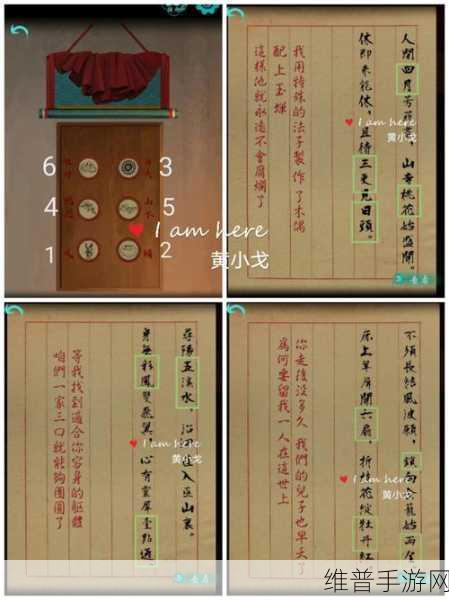 6
3
4
5
1
2
I am here
黄小戈
人間四月芳菲盡，山寺桃花始盛開。
休即未能休，且待三更見日頭。
我用特殊的法子製作了木偶
配上玉蟬
這樣他就永遠不會腐爛了
I am here
黄小戈
查看
尋陽五溪水，沿洄直入巫山裏。
身無彩鳳雙飛翼，心有靈犀壹點通。
等我找到適合你容身的軀體
咱們一家三口就能夠團圓了
I am here
黄小戈
查看
不須長結風波願，鎖向金籠始兩全
床上草屏開六扇，折枝花綻牡丹紅
你走後沒多久 我們的兒子也早夭了
為何要留我一人在這世上
I am here
黄小戈
查看
维普手游网